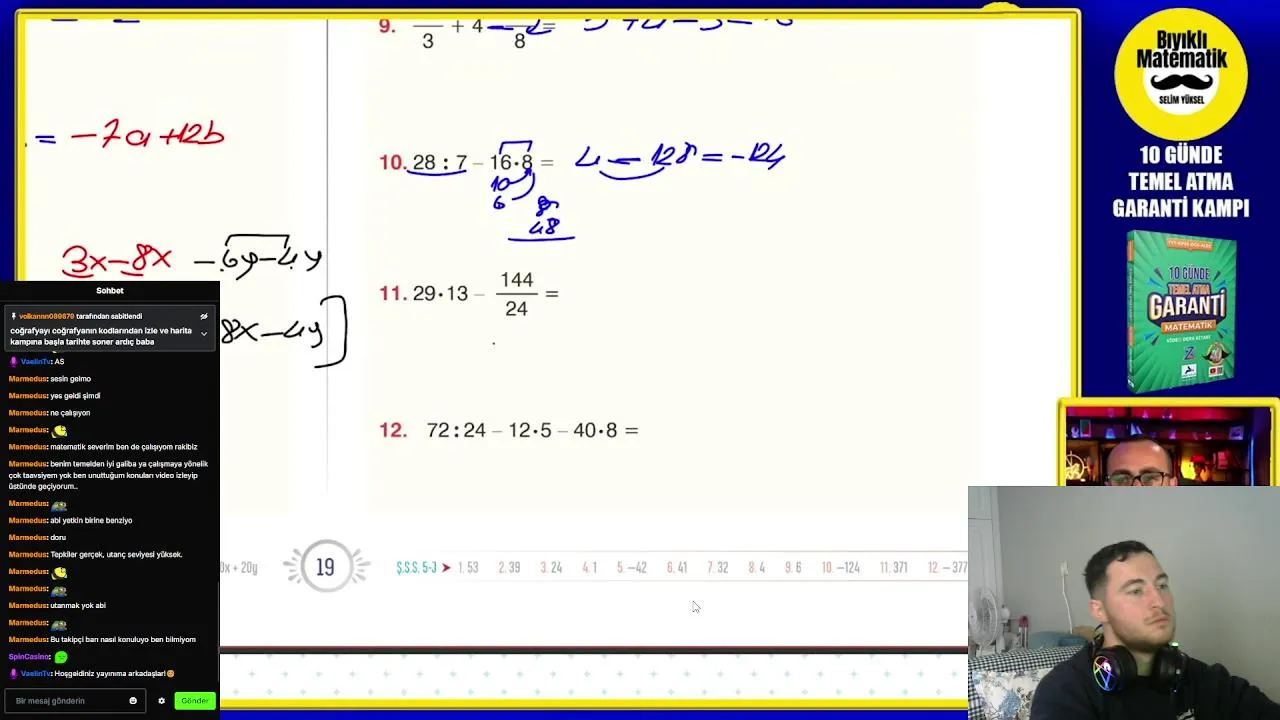 9. 3 + 4 8 =
= -7a+12b
10. 28 : 7 – 16·8 = 4 – 128 = -124
10
6
48
3x-8x -6y-4y
11. 29·13 – 144/24 =
8x-4y
12. 72:24 – 12·5 – 40·8 =
0x + 20y
19
Ş.S.S. 5-J ➤ 1. 53 2. 39 3. 24 4. 1 5. –42 6. 41 7. 32 8. 4 9. 6 10. –124 11. 371 12. –377
Bıyıklı
Matematik
SELİM YÜKSEL
10 GÜNDE
TEMEL ATMA
GARANTİ KAMPI
10 GÜNDE
TEMEL ATMA
GARANTİ
MATEMATİK
VİDEO DERS KİTABI
Sohbet
volkannn089879 tarafından sabitlendi
coğrafyayı coğrafyanın kodlarından izle ve harita
kampına başla tarihte soner ardıç baba
VaelinTv: AS
Marmedus: sesin gelmo
Marmedus: yes geldi şimdi
Marmedus: ne çalışıyon
Marmedus:
Marmedus: matematik severim ben de çalışıyom rakibiz
Marmedus: benim temelden iyi galiba ya çalışmaya yönelik
çok taavsiyem yok ben unuttuğum konuları video izleyip
üstünde geçiyorum..
Marmedus:
Marmedus: abi yetkin birine benziyo
Marmedus: doru
Marmedus: Tepkiler gerçek, utanç seviyesi yüksek.
Marmedus:
Marmedus:
Marmedus: utanmak yok abi
Marmedus:
Marmedus: Bu takipçi barı nasıl konuluyo ben bilmiyom
SpinCasino:
VaelinTv: Hoşgeldiniz yayınıma arkadaşlar!
Bir mesaj gönderin
Gönder